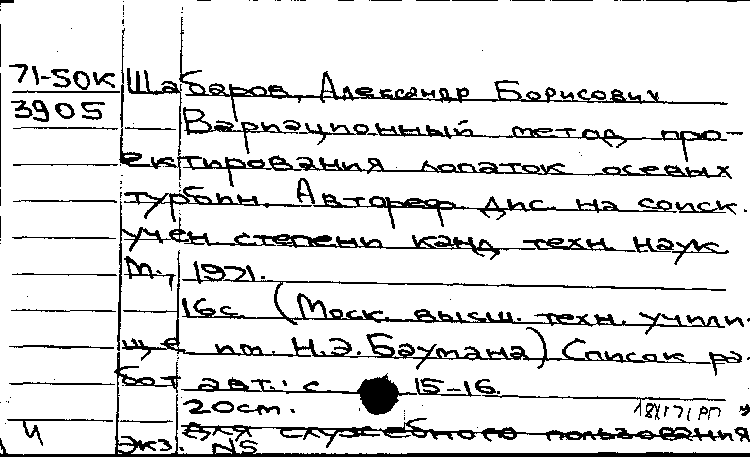 71-50к Шабаров, Александр Борисович
3905
Вариационный метод про-
ектирования лопаток осевых
турбин. Автореф. дис. на соиск.
учен степени канд. техн. наук
М., 1971.
16с. (Моск. высш. техн. учили-
ще им. Н.Э. Баумана) Список ра-
бот авт.: с. 15-16.
20см.
И для служебного пользования
экз. №5